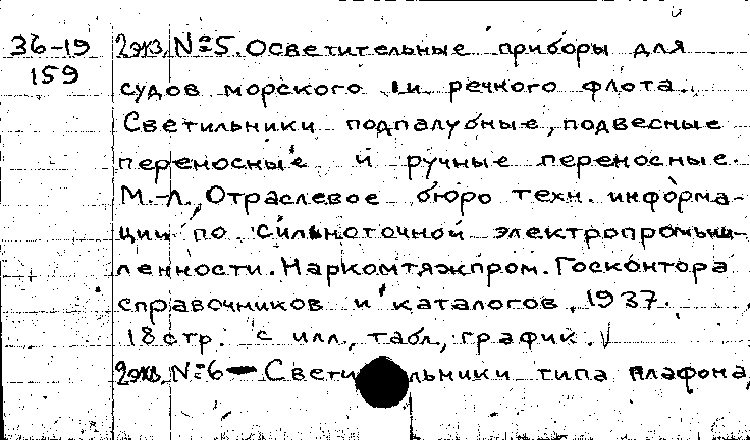 36-19 2экз. №5. Осветительные приборы для
159 судов морского и речного флота.
Светильники подпалубные, подвесные
переносные и ручные переносные.
М.-Л., Отраслевое бюро техн. информа-
ции по сильноточной электропромыш-
ленности. Наркомтяжпром. Госконтора
справочников и каталогов, 1937.
18 стр. с илл., табл., график.
2экз. №6 - Светильники типа плафона,